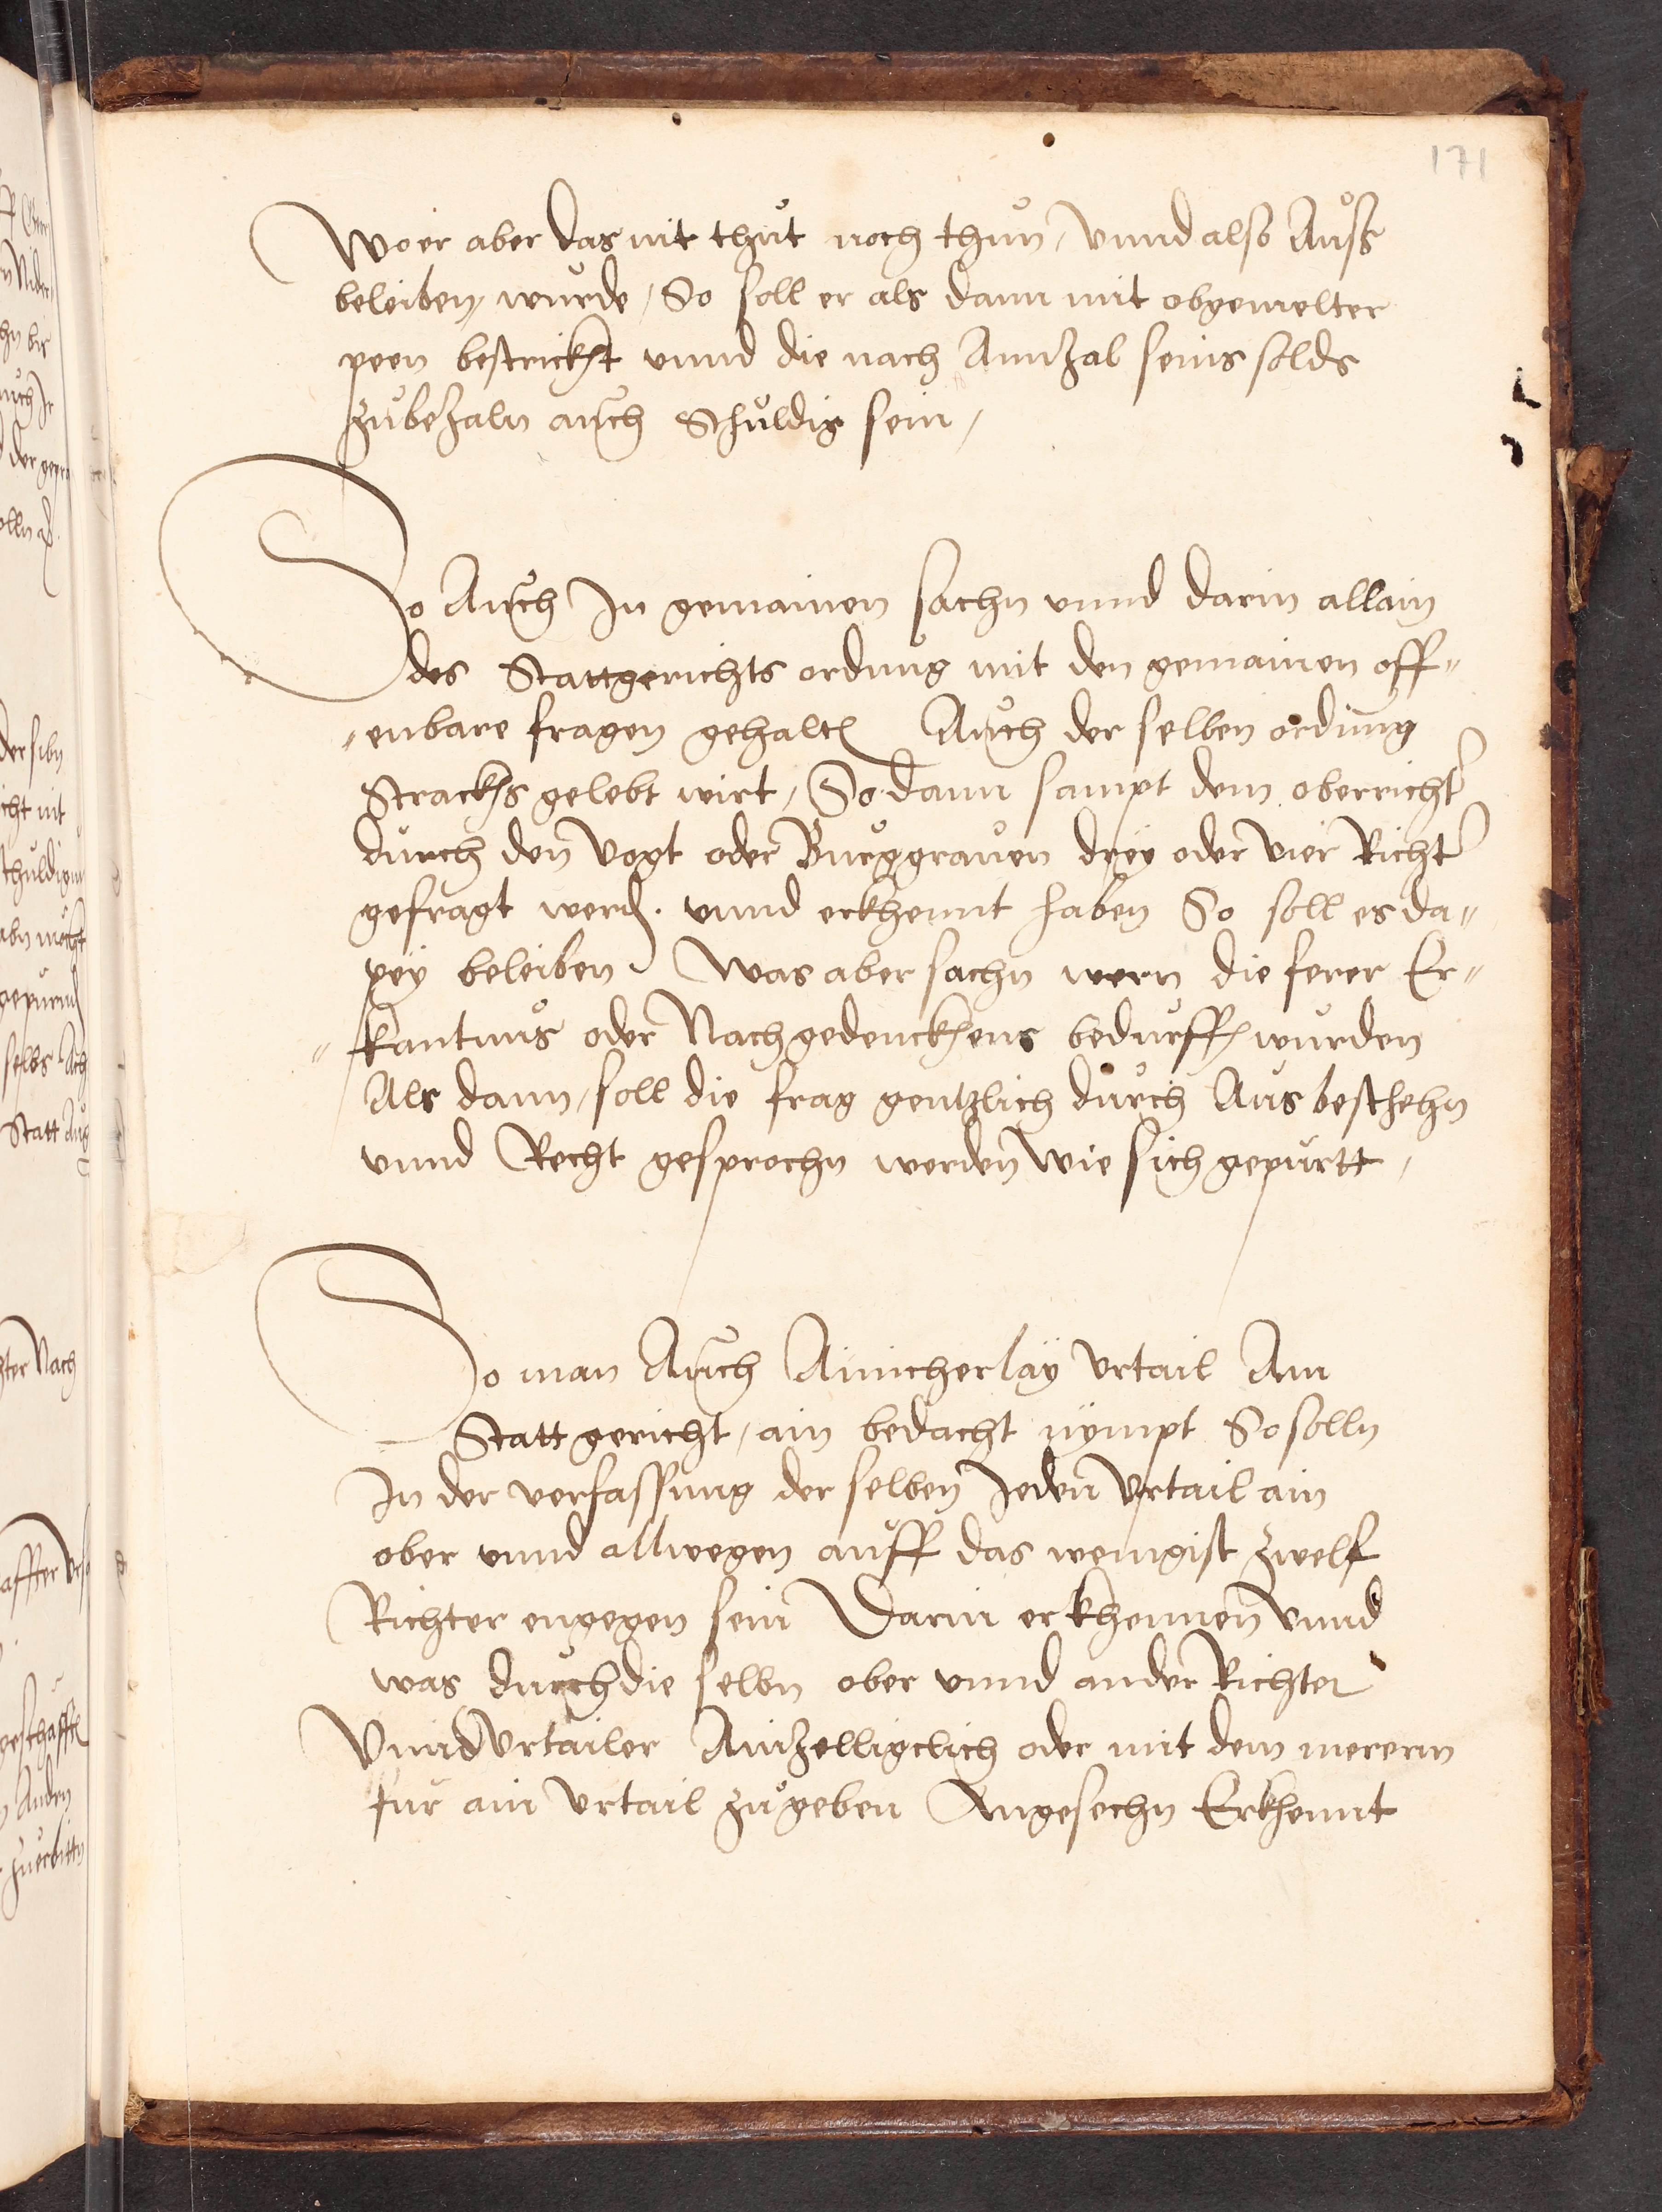 171
Wo er aber das nit thut noch thun / vnnd also Auß
beleiben, wurde / So soll er als dann mit obgemelter
peen bestrickht vnnd die nach Annzal seins solds
zubezaln auch Schuldig sein /
So Auch In gemainen sachn vnnd darin allain
des Stattgerichts ordnung mit den gemainen off„
„enbare fragen gehalten Auch der selben ordnung
Strackhs gelebt wirt / So dann sampt dem oberrichter
durch den Vogt oder Burggrauen drey oder vier Richter
gefragt werden. vnnd erkhennt haben So soll es da„
pey beleiben Was aber sachn wern die ferer Er„
„kantnus oder Nachgedenckhens bedurffen wurden
Als dann / soll die frag gentzlich durch Aus beschehn
vnnd Recht gesprochn werden wie sich gepurtt /
So man Auch Ainicherlay Vrtail Am
Stattgericht / ain bedacht nympt So solln
In der verfassung der selben Jeden Vrtail ain
ober vnnd allwegen auff das wenigist zwelf
Richter engegen sein Darin erkhennen Vnnd
was durch die selbn ober vnnd ander Richter
Vnnd Vrtailer Ainzelligclich oder mit dem merern
fur ain Vrtail zugeben Angesechn Erkhennt